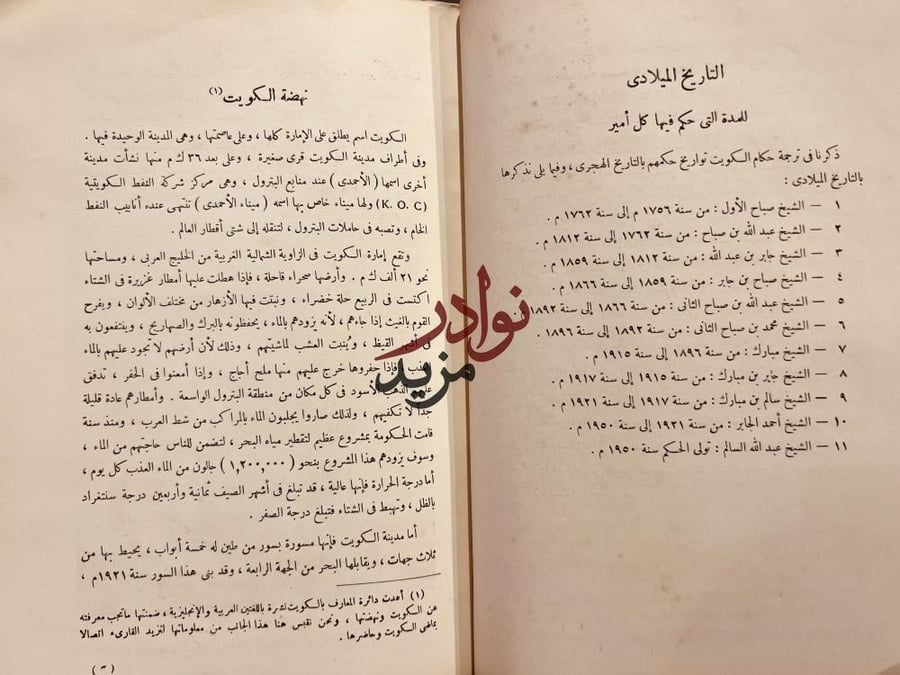 التاريخ الميلادى
للمدة التى حكم فيها كل أمير
ذكرنا فى ترجمة حكام الكويت تواريخ حكمهم بالتاريخ الهجرى ، وفيما يلى نذكرها
بالتاريخ الميلادى :
١ — الشيخ صباح الأول : من سنة ١٧٥٦ م إلى سنة ١٧٦٢ م .
٢ — الشيخ عبد الله بن صباح : من سنة ١٧٦٢ إلى سنة ١٨١٢ م .
٣ — الشيخ جابر بن عبد الله : من سنة ١٨١٢ إلى سنة ١٨٥٩ م .
٤ — الشيخ صباح بن جابر : من سنة ١٨٥٩ إلى سنة ١٨٦٦ م .
٥ — الشيخ عبد الله بن صباح الثانى : من سنة ١٨٦٦ إلى سنة ١٨٩٢
٦ — الشيخ محمد بن صباح الثانى : من سنة ١٨٩٢ إلى سنة ١٨٩٦ م .
٧ — الشيخ مبارك : من سنة ١٨٩٦ إلى سنة ١٩١٥ م .
٨ — الشيخ جابر بن مبارك : من سنة ١٩١٥ إلى سنة ١٩١٧ م .
٩ — الشيخ سالم بن مبارك : من سنة ١٩١٧ إلى سنة ١٩٢١ م .
١٠ — الشيخ أحمد الجابر : من سنة ١٩٢١ إلى سنة ١٩٥٠ م .
١١ — الشيخ عبد الله السالم : تولى الحكم سنة ١٩٥٠ م .
نهضة الكويت (١)
الكويت اسم يطلق على الإمارة كلها ، وعلى عاصمتها ، وهى المدينة الوحيدة فيها .
وفى أطراف مدينة الكويت قرى صغيرة ، وعلى بعد ٣٦ ك م منها نشأت مدينة
أخرى اسمها ( الأحمدى ) عند منابع البترول ، وهى مركز شركة النفط الكويتية
(K. O. C) ولها ميناء خاص بها اسمه ( ميناء الأحمدى ) تنتهى عنده أنابيب النفط
الخام ، وتصبه فى حاملات البترول ، لتنقله إلى شتى أقطار العالم .
وتقع إمارة الكويت فى الزاوية الشمالية الغربية من الخليج العربى ، ومساحتها
نحو ٢١ ألف ك م . وأرضها صحراء قاحلة ، فإذا هطلت عليها أمطار غزيرة فى الشتاء
اكتست فى الربيع حلة خضراء ، ونبتت فيها الأزهار من مختلف الألوان ، ويفرح
القوم بالغيث إذا جاءهم ، لأنه يزودهم بالماء ، يحفظونه بالبرك والصهاريج ، وينتفعون به
فى أشهر القيظ ، ويُنبت العشب لماشيتهم ، وذلك لأن أرضهم لا تجود عليهم بالماء
العذب ، فإذا حفروها خرج عليهم منها ملح أجاج ، وإذا أمعنوا فى الحفر ، تدفق
عليهم الذهب الأسود فى كل مكان من منطقة البترول الواسعة . وأمطارهم عادة قليلة
جداً لا تكفيهم ، ولذلك صاروا يجلبون الماء بالمراكب من شط العرب ، ومنذ سنة
قامت الحكومة بمشروع عظيم لتقطير مياه البحر ، لتضمن للناس حاجتهم من الماء ،
وسوف يزودهم هذا المشروع بنحو ( ١,٢٠٠,٠٠٠ ) جالون من الماء العذب كل يوم ،
أما درجة الحرارة فإنها عالية ، قد تبلغ فى أشهر الصيف ثمانية وأربعين درجة سنتغراد
بالظل ، وتهبط فى الشتاء فتبلغ درجة الصفر .
أما مدينة الكويت فإنها مسورة بسور من طين له خمسة أبواب ، يحيط بها من
ثلاث جهات ، ويقابلها البحر من الجهة الرابعة ، وقد بنى هذا السور سنة ١٩٢١ م ،
(١) أعدت دائرة المعارف بالكويت نشرة باللغتين العربية والإنجليزية ، ضمنتها ما تجب معرفته
عن الكويت ونهضتها ، ونحن نقبس هنا هذا الجانب من معلوماتها لنزيد القارىء اتصالا
بماضى الكويت وحاضرها .
نوادر
مزيد